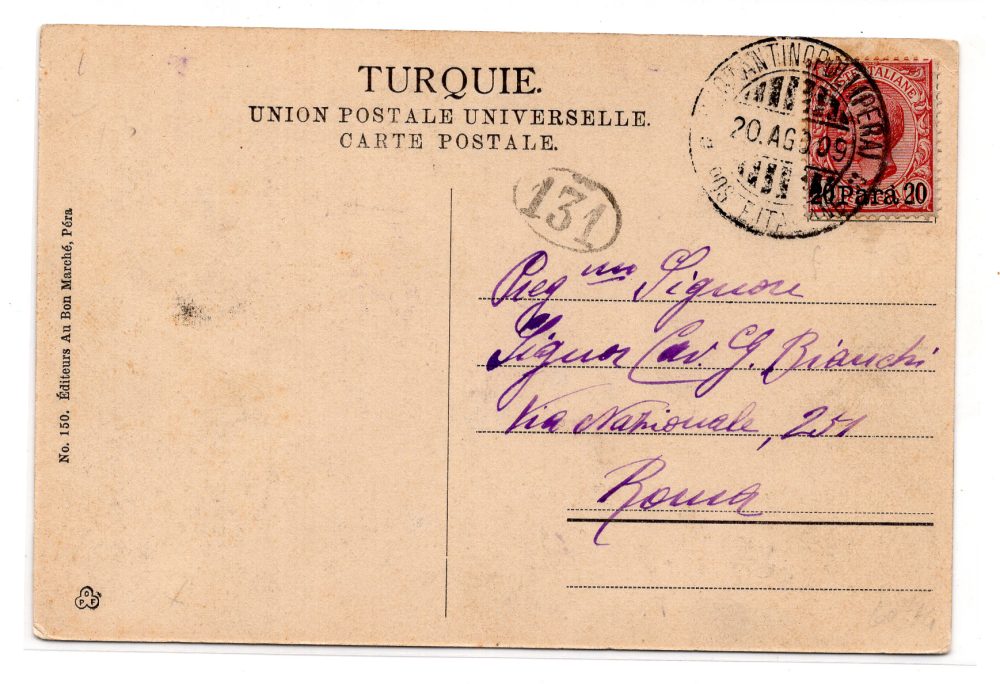 TURQUIE.
UNION POSTALE UNIVERSELLE.
CARTE POSTALE.
COSTANTINOPOLI (PERA)
20.AGO.09
POSTE ITALIANE
POSTE ITALIANE
20 Para 20
131
Preg mo Signore
Signor Cav. G. Bianchi
Via Nazionale, 251
Roma
No. 150. Éditeurs Au Bon Marché, Péra
O
P F